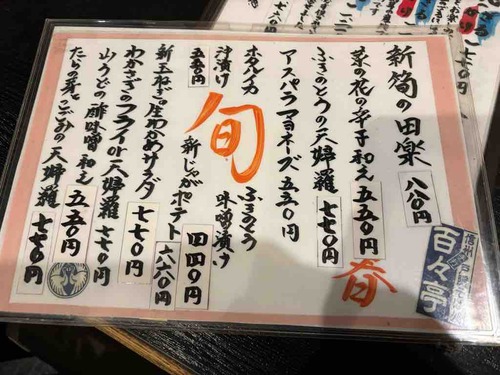 新筍の田楽 八八〇円
菜の花の辛子和え 五五〇円
ふきのとうの天婦羅 七七〇円
アスパラマヨネーズ 五五〇円
ホタルイカ
沖漬け
五五〇円
ふきのとう
味噌漬け
四四〇円
旬
春
新じゃがポテト 六六〇円
新玉ねぎと生わかめサラダ 七七〇円
わかさぎのフライor天婦羅 七七〇円
山うどの酢味噌和え 五五〇円
たらの芽とこごみの天婦羅 七七〇円
百々亭